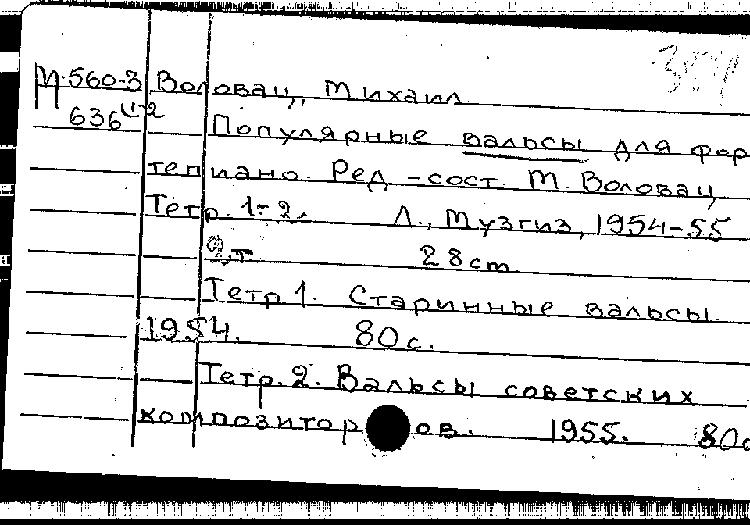 М.560-3 Воловац, Михаил
636 1-2 Популярные вальсы для фор
тепиано. Ред-сост. М. Воловац
Тетр. 1-2. Л., Музгиз, 1954-55
2 т 28 cm.
Тетр 1. Старинные вальсы.
1954. 80 с.
Тетр. 2. Вальсы советских
композиторов. 1955. 80с